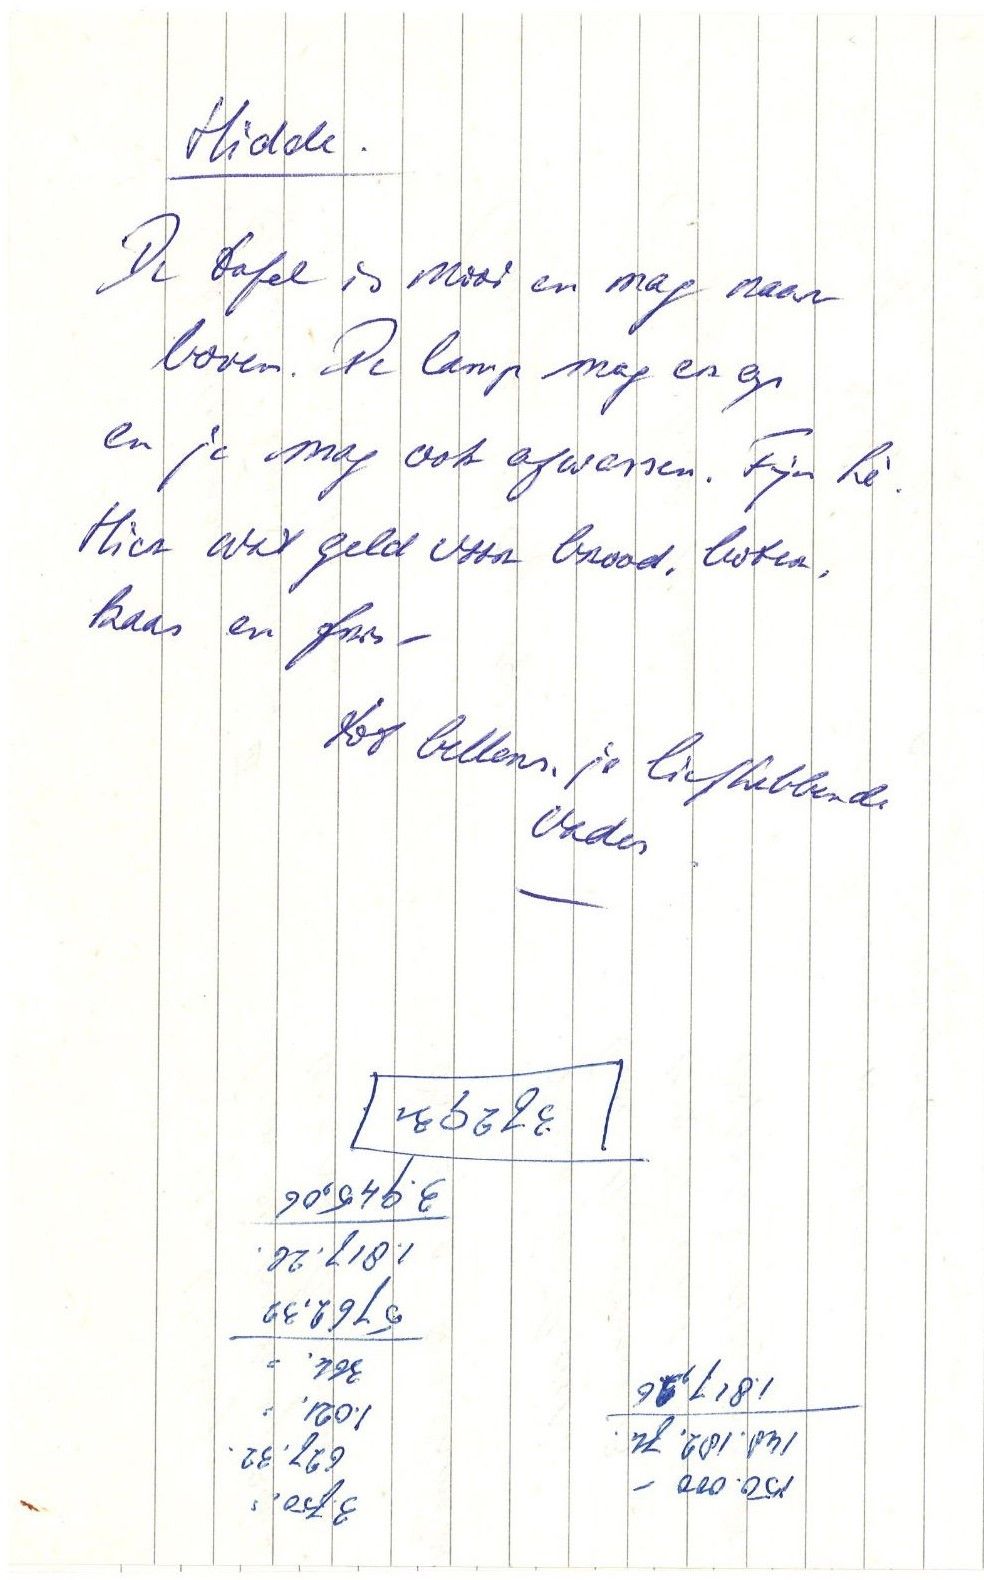 Hidde.
De tafel is mooi en mag naar
boven. De lamp mag er op
en je mag ook afwassen. Fijn hè.
Hier wat geld voor brood, boter,
kaas en fris –
Tot bellens, je liefhebbende
Vader
150.000 –
148.182,74.
1.817,26
3.750,=
627,32.
1.021,=
364,=
5762,32
1.817,26.
3.945,06